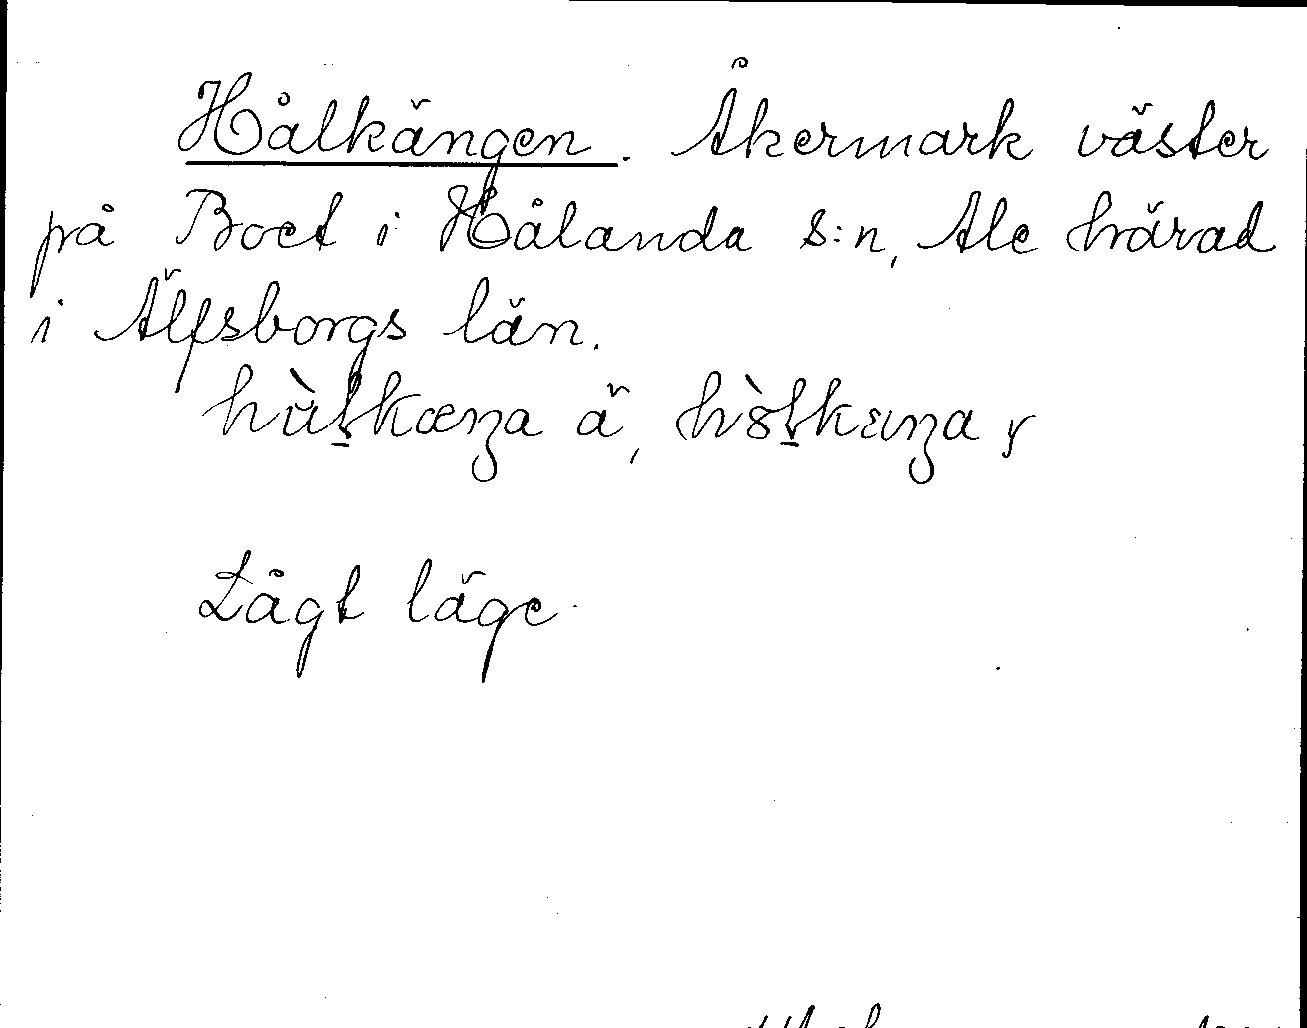 Hålkängen. Åkermark väster
på Boet i Hålanda s:n, Ale härad
i Älfsborgs län.
ä,
Lågt läge